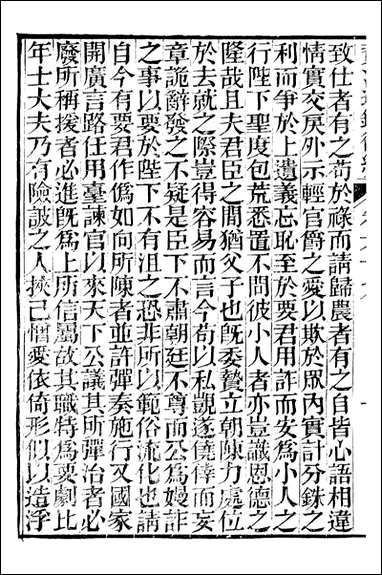 致仕者有之苟於祿而請歸農者有之自皆心語相違
情實交戾外示輕官爵之愛以欺於眾內實計分銖之
利而爭於上遺義忘恥至於要君用詐而安爲小人之
行陛下聖度包荒悉置不問彼小人者亦豈識恩德之
隆哉且夫君臣之間猶父子也旣委贄立朝陳力處位
於去就之際豈得容易而言今苟以私覬遂僥倖而妄
章詭辭發之不疑是臣下不肅朝廷不尊而公爲嫚詐
之事以要於陛下不有沮之恐非所以範俗流化也請
自今有要君作僞如向所陳者並許彈奏施行又國家
開廣言路任用臺諫官以來天下公議其所彈治者必
廢所稱援者必進旣爲上所信屬故其職特爲要劇比
年士大夫乃有險詖之人挾己憎愛依倚形似以造浮